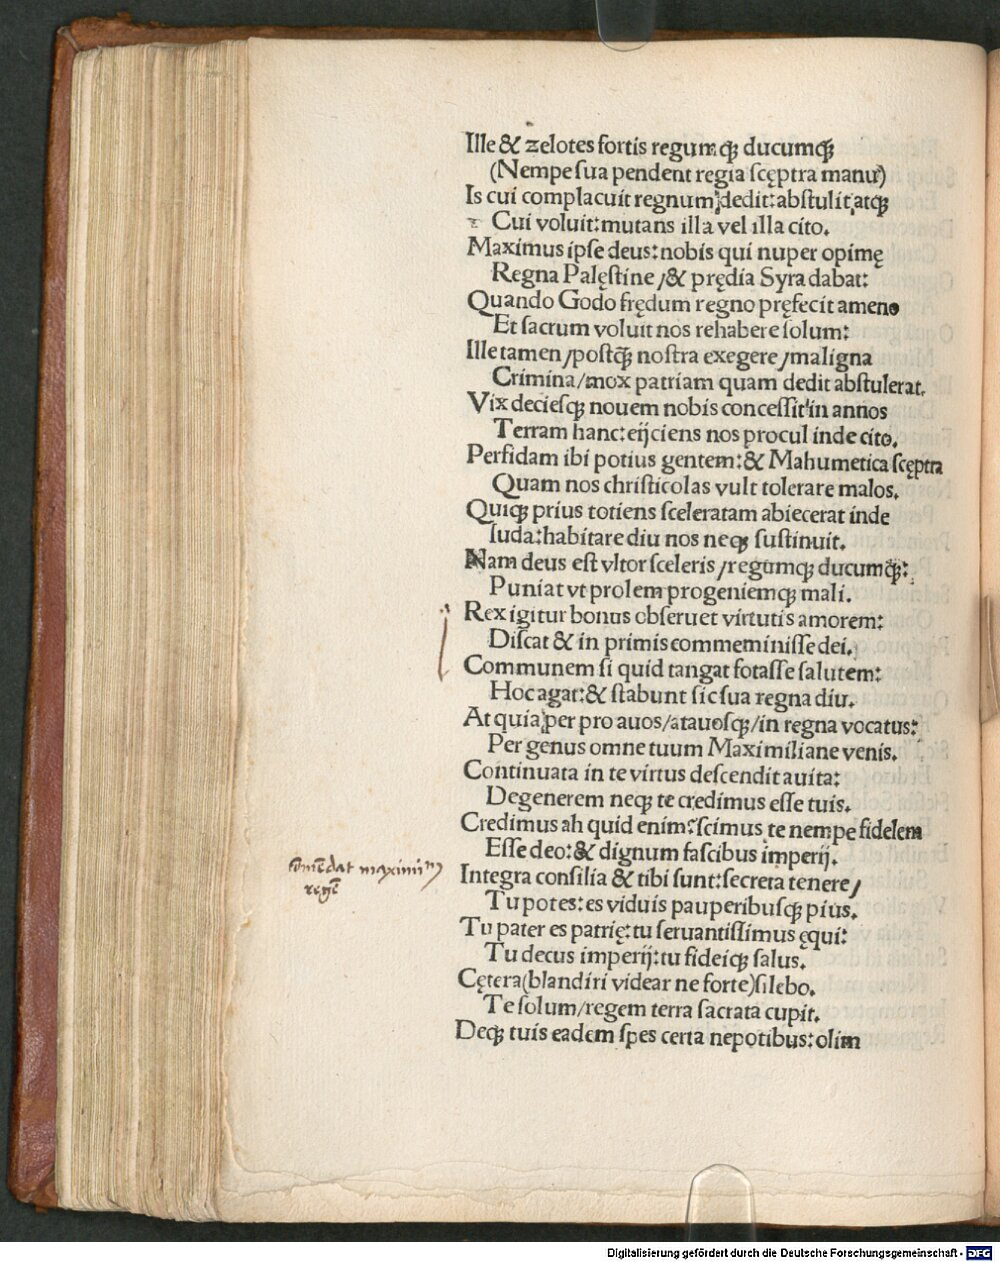 Ille & zelotes fortis regumqꝫ ducumqꝫ
(Nempe sua pendent regia scęptra manu)
Is cui complacuit regnum dedit: abstulit atqꝫ
Cui voluit: mutans illa vel illa cito.
Maximus ipse deus: nobis qui nuper opimę
Regna Palęstine /& prędia Syra dabat:
Quando Godofrędum regno pręfecit ameno
Et sacrum voluit nos rehabere solum:
Ille tamen /postqꝫ nostra exegere /maligna
Crimina/mox patriam quam dedit abstulerat.
Vix deciesqꝫ nouem nobis concessit in annos
Terram hanc: eijciens nos procul inde cito.
Perfidam ibi potius gentem: & Mahumetica scęptra
Quam nos christicolas vult tolerare malos.
Quiqꝫ prius totiens sceleratam abiecerat inde
Iuda: habitare diu nos neqꝫ sustinuit.
Nam deus est vltor sceleris /regumqꝫ ducumqꝫ:
Puniat vt prolem progeniemqꝫ mali.
Rex igitur bonus obseruet virtutis amorem:
Discat & in primis commeminisse dei.
Communem si quid tangat fotasse salutem:
Hoc agat: & stabunt sic sua regna diu.
At quia per proauos/atauosqꝫ/in regna vocatus:
Per genus omne tuum Maximiliane venis.
Continuata in te virtus descendit auita:
Degenerem neqꝫ te credimus esse tuis.
Credimus ah quid enim? scimus te nempe fidelem
Esse deo: & dignum fascibus imperij.
Integra consilia & tibi sunt: secreta tenere/
Tu potes: es viduis pauperibusqꝫ pius.
Tu pater es patrię: tu seruantissimus ęqui:
Tu decus imperij: tu fideiqꝫ salus.
Cętera(blandiri videar ne forte)silebo.
Te solum/regem terra sacrata cupit.
Deqꝫ tuis eadem spes certa nepotibus: olim
regē
Digitalisierung gefördert durch die Deutsche Forschungsgemeinschaft - DFG